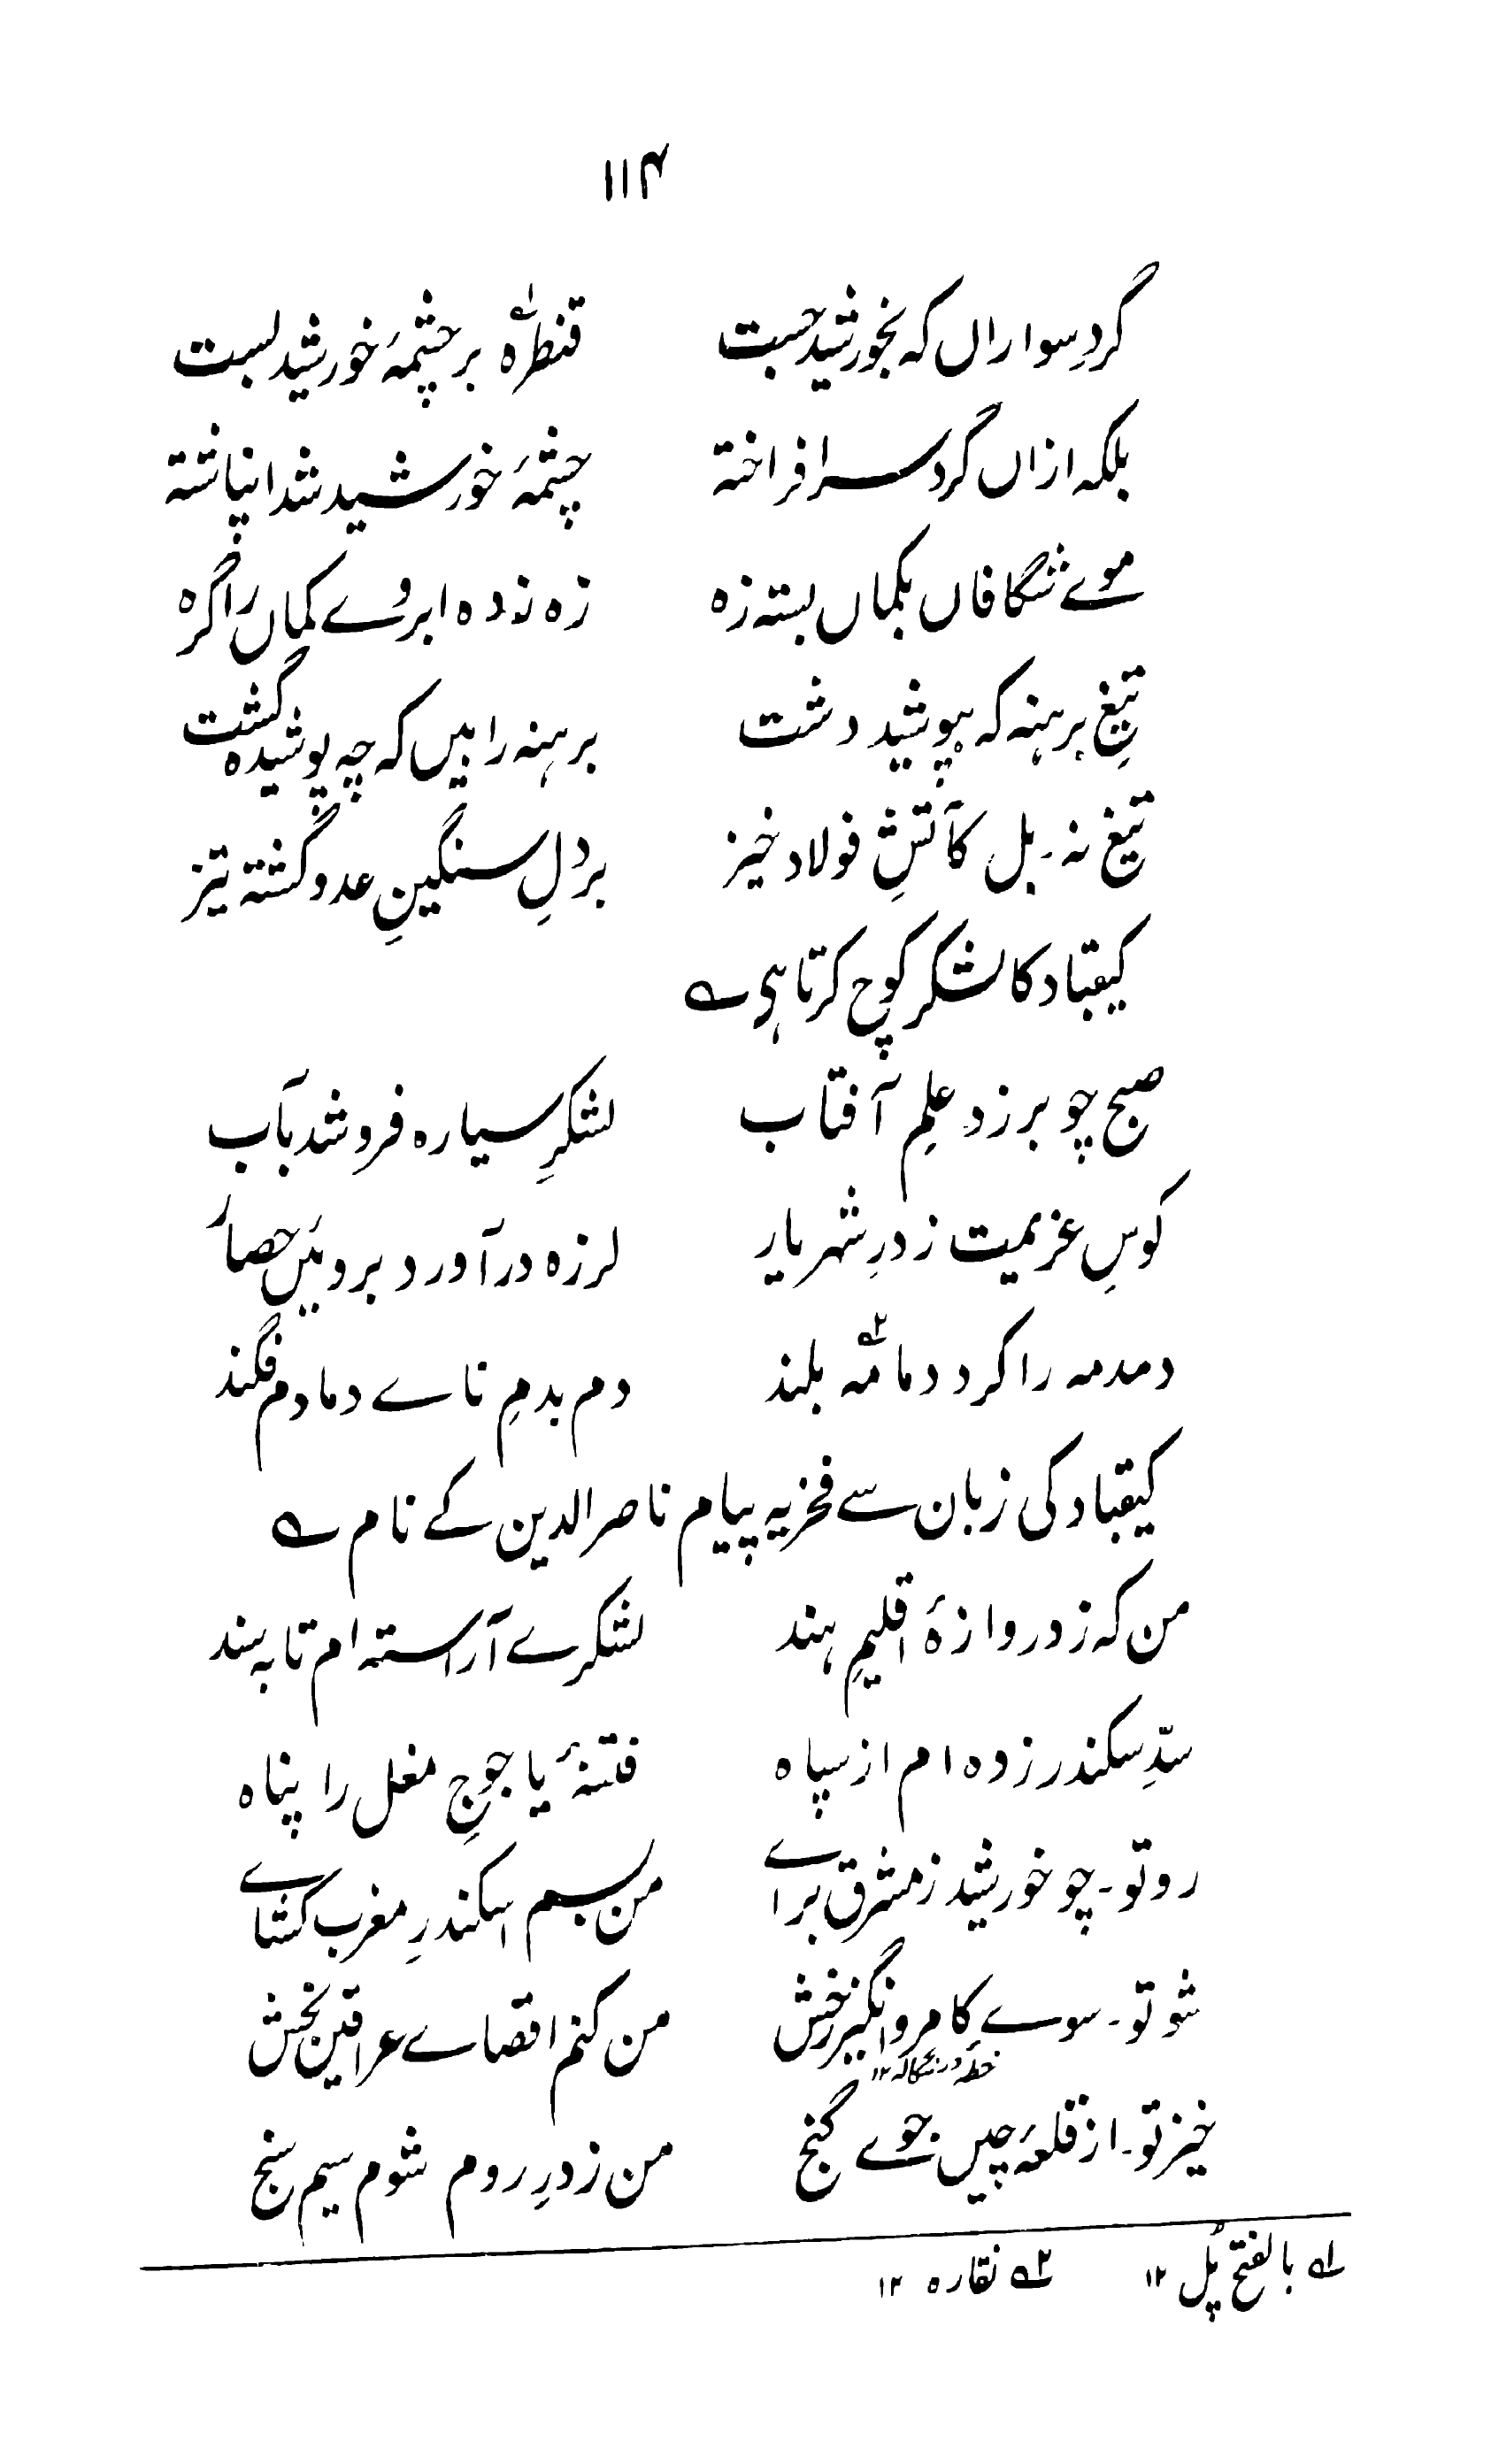 ۱۱۴
گردِ سواراں کہ بخورشید جست قنطرہ؎۱ بر چشمۂ خورشید بست
بلکہ ازاں گرد سر افراختہ چشمۂ خورشید شد انپاشتہ
موے شگافاں بکماں بستہ زہ زہ زدہ ابروے کماں را گرہ
تیغِ برہنہ کہ بپوشید دشت برہنہ را بیں کہ چہ پوشیدہ گشت
تیغ نہ۔ بل کآتشِ فولاد خیز بر دلِ سنگینِ عدو گشتہ تیز
کیقباد کا لشکر کوچ کرتا ہی ؎
صبح چو بر زد علمِ آفتاب لشکرِ سیارہ فرو شد بآب
کوسِ عزیمت ز درِ شہریار لرزہ در آورد بروئیں حصار
دمدمہ را کرد دمامہ؎۲ بلند دم بدمِ ناے دمادم فگند
کیقباد کی زبان سے فخریہ پیام ناصر الدین کے نام ؎
من کہ ز دروازۂ اقلیمِ ہند لشکرے آراستہ ام تا بہ سند
سدِّ سکندر زدہ ام از سپاہ فتنۂ یاجوجِ مغل را پناہ
رو تو۔ چو خورشید ز مشرق براے من بسم اسکندرِ مغرب کشاے
شو تو۔ سوے کامرو انگیز رخش من کنم اقصاے عراقین بخش
خطہ در بنگالہ ۱۲
خیز تو۔ از قلعۂ چیں جوے گنج من ز درِ روم شوم سیم سنج
؎۱ بالفتح پُل ۱۲ ؎۲ نقارہ ۱۲